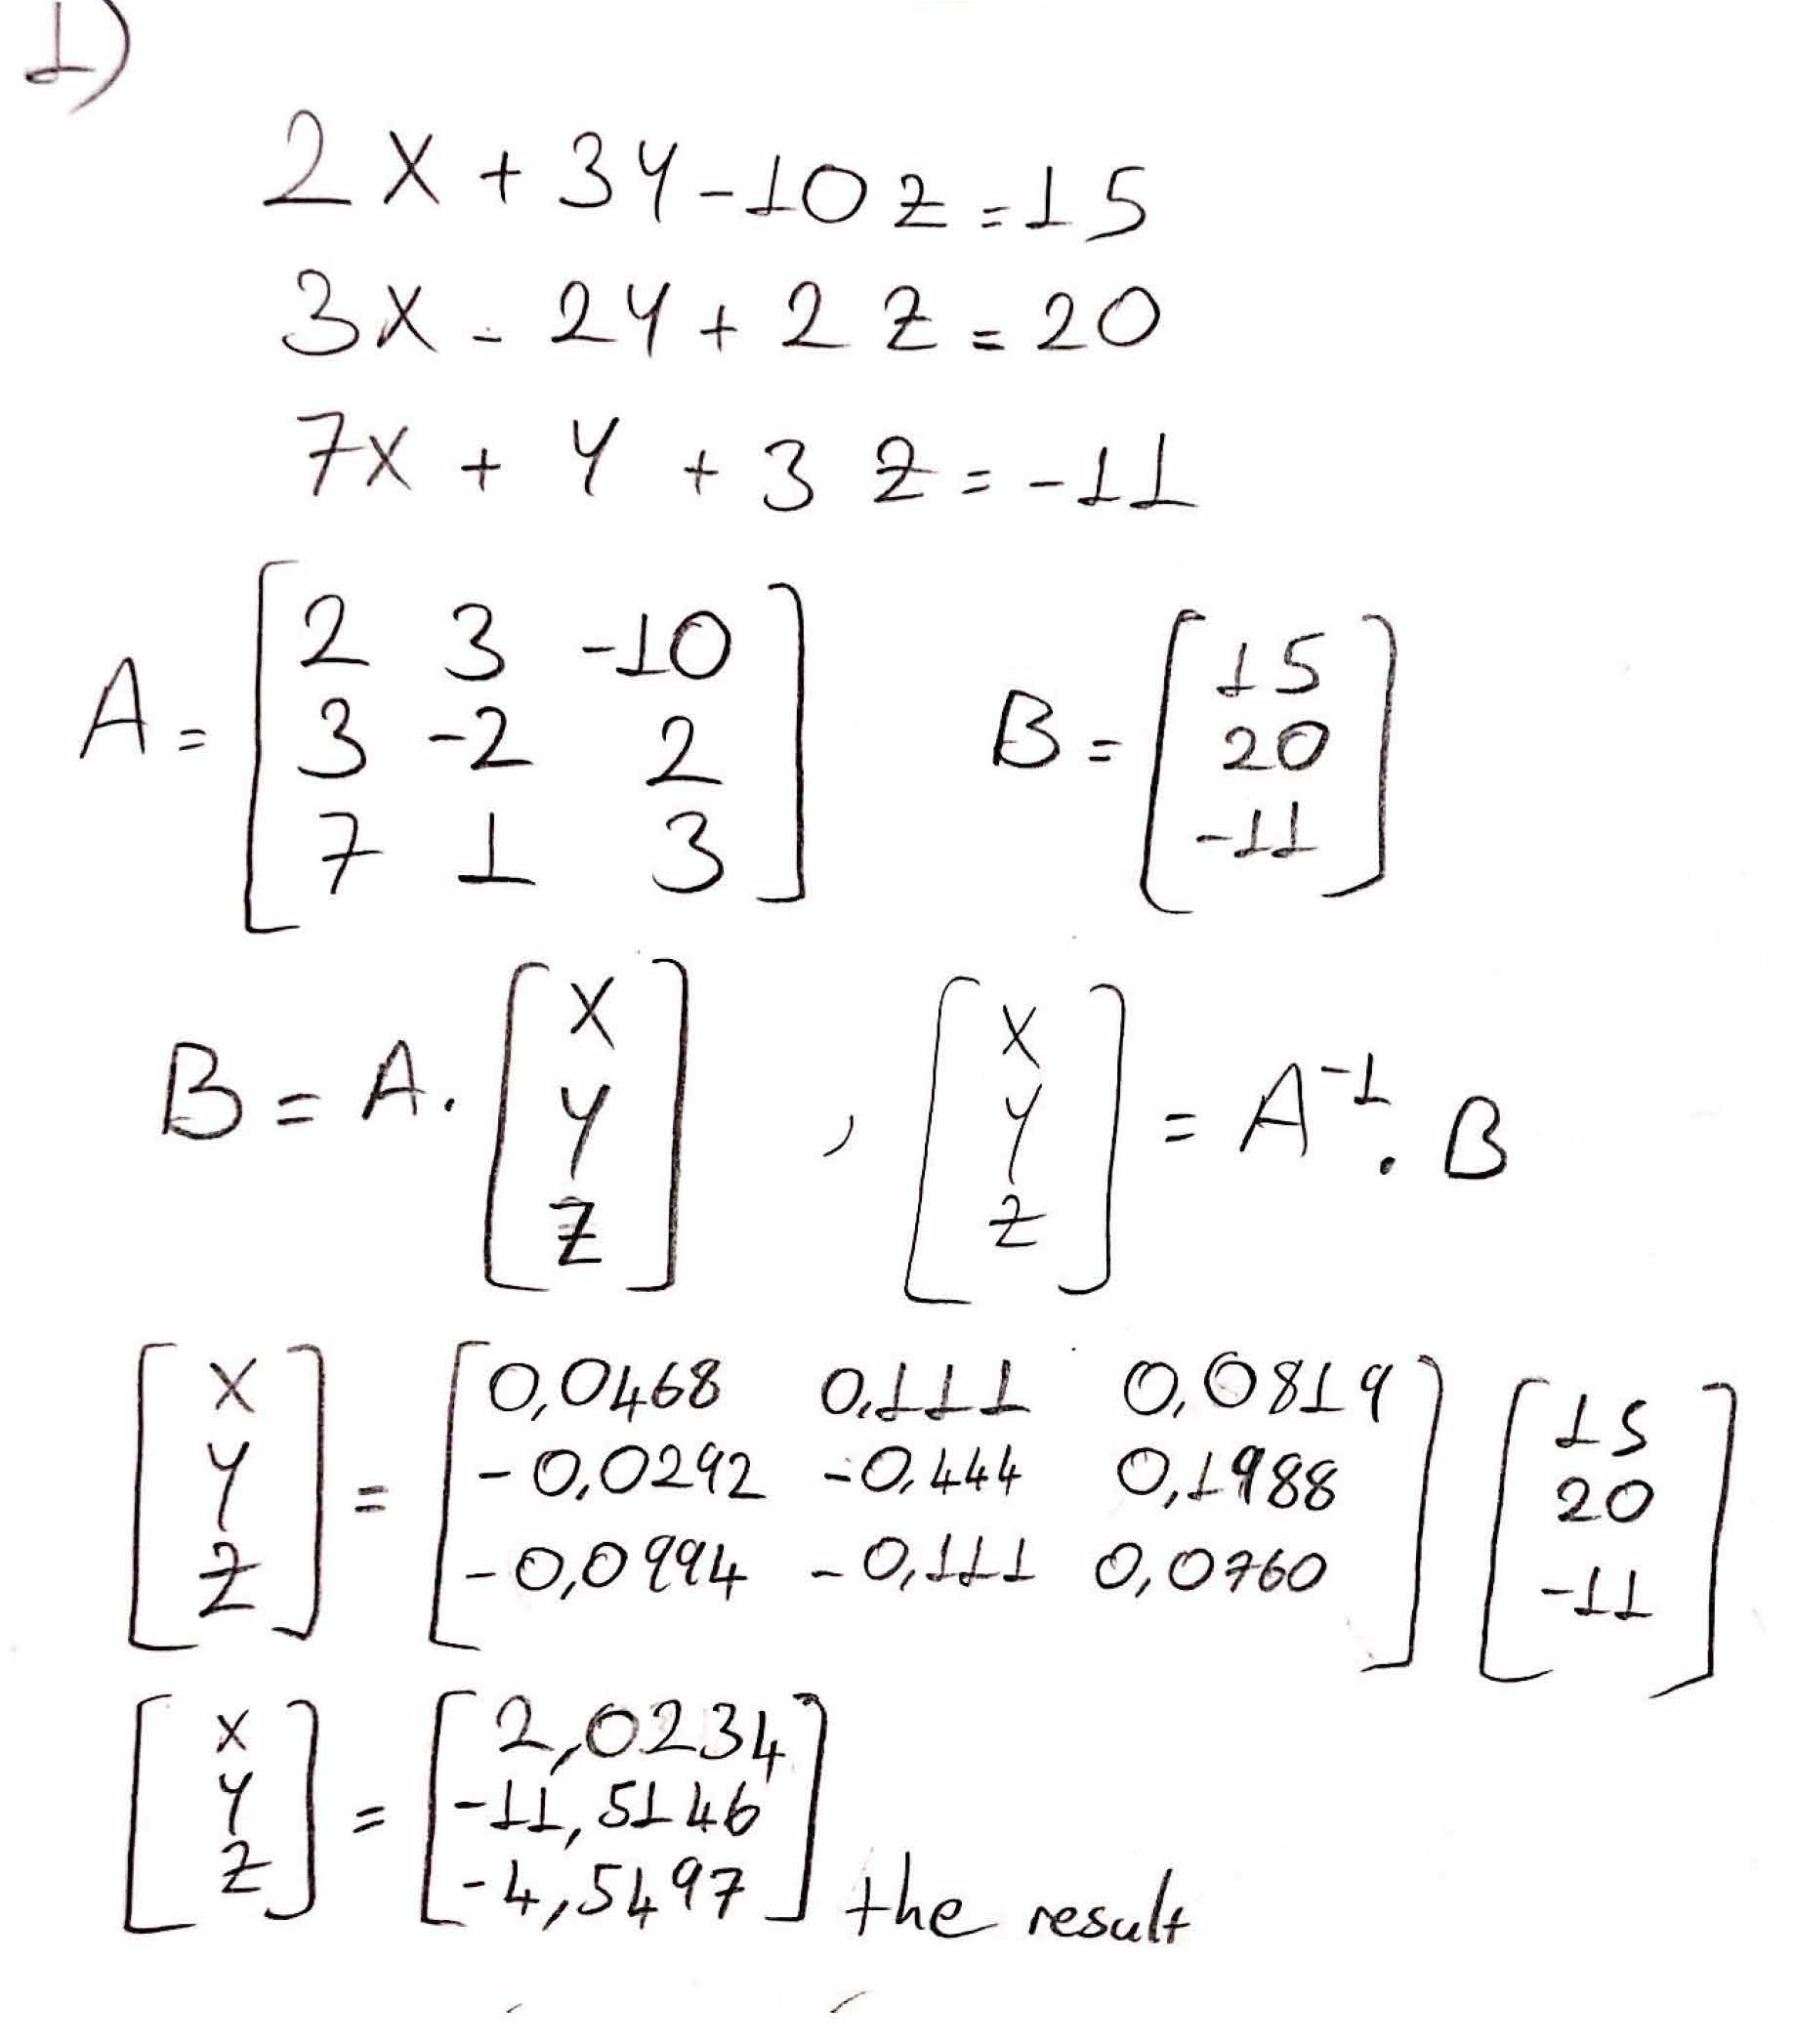 1)
2x + 3y - 10z = 15
3x - 2y + 2z = 20
7x + y + 3z = -11
A = [2 3 -10; 3 -2 2; 7 1 3] B = [15; 20; -11]
B = A. [x; y; z] , [x; y; z] = A^-1 . B
[x; y; z] = [0,0468 0,111 0,0819; -0,0292 -0,444 0,1988; -0,0994 -0,111 0,0760] [15; 20; -11]
[x; y; z] = [2,0234; -11,5146; -4,5497] the result